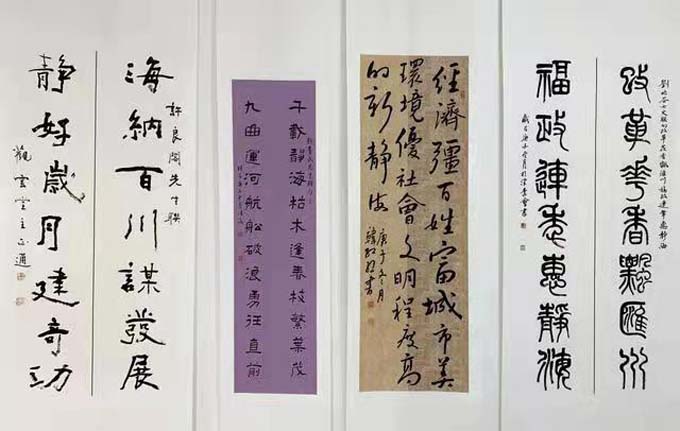 改革華香飄匯川
福政連年惠靜海
經濟彊百姓富城市美
環境優社會文明程度高
的新靜海
庚子冬月
千載靜海枯木逢春枝繁葉茂
九曲運河航船破浪勇往直前
許良閣先生聯
海納百川謀發展
靜好歲月建奇功